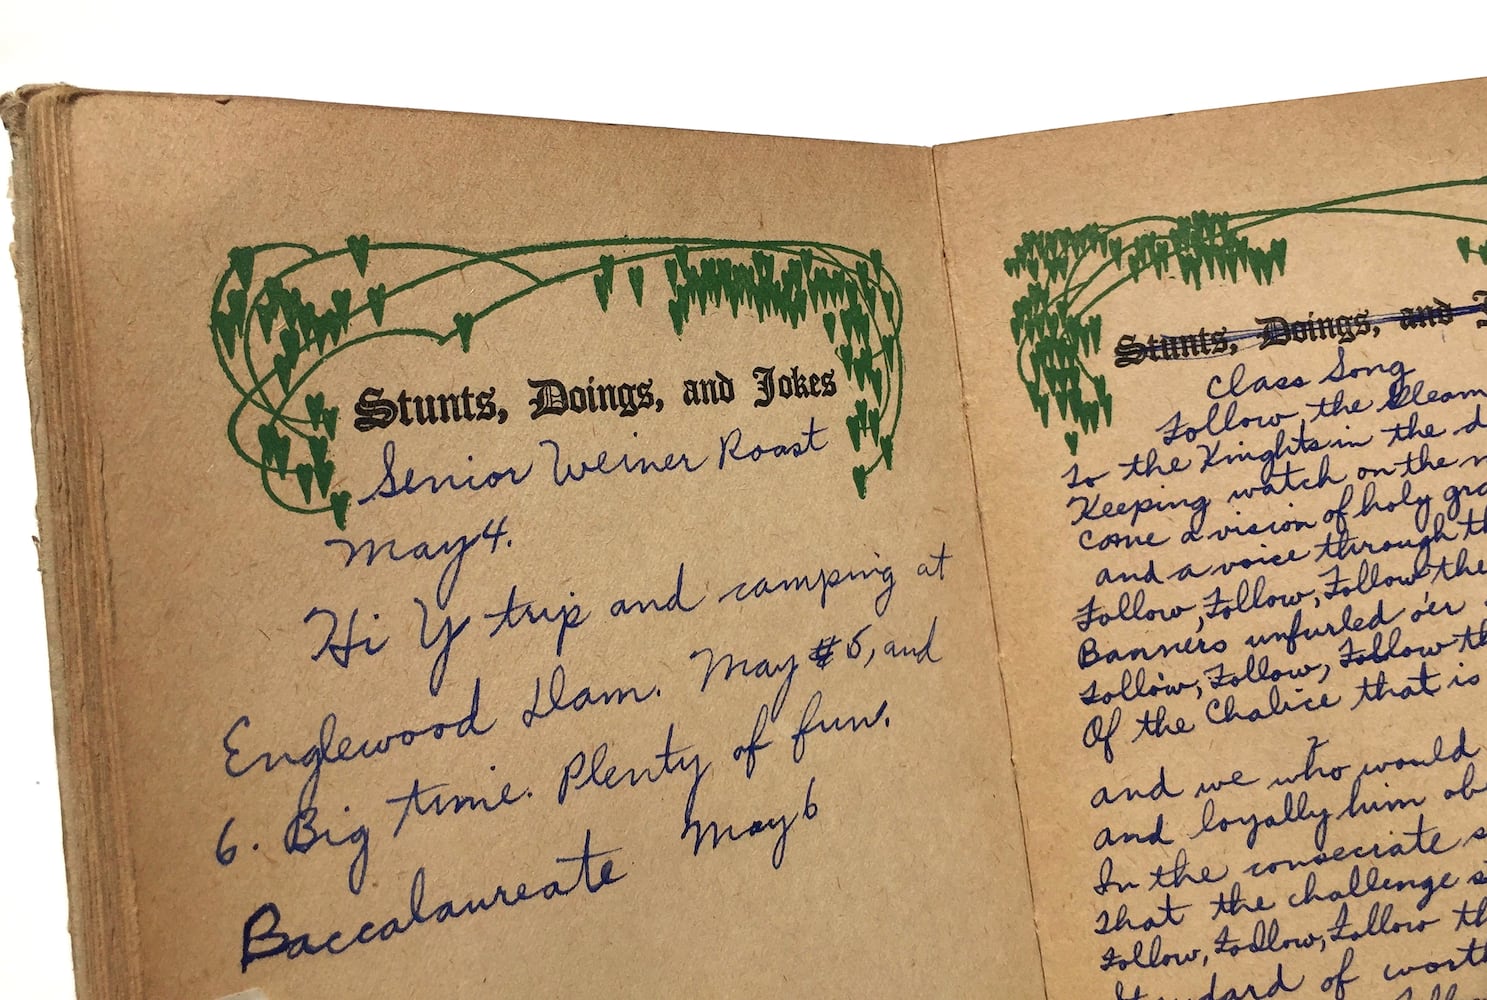 Stunts, Doings, and Jokes
Senior Weiner Roast
May 4.
Hi Y trip and camping at
Englewood Dam. May 5, and
6. Big time. Plenty of fun.
Baccalaureate May 6
Stunts, Doings, and
Class Song
Follow, the Gleam
To the Knights in the
Keeping watch on the
Come a vision of holy
and a voice through
Follow, Follow, Follow the
Banners unfurled o'er
Follow, Follow, Follow
Of the Chalice that is
and we who would
and loyally him
In the conseciate
That the challenge
Follow, Follow, Follow
Standard of